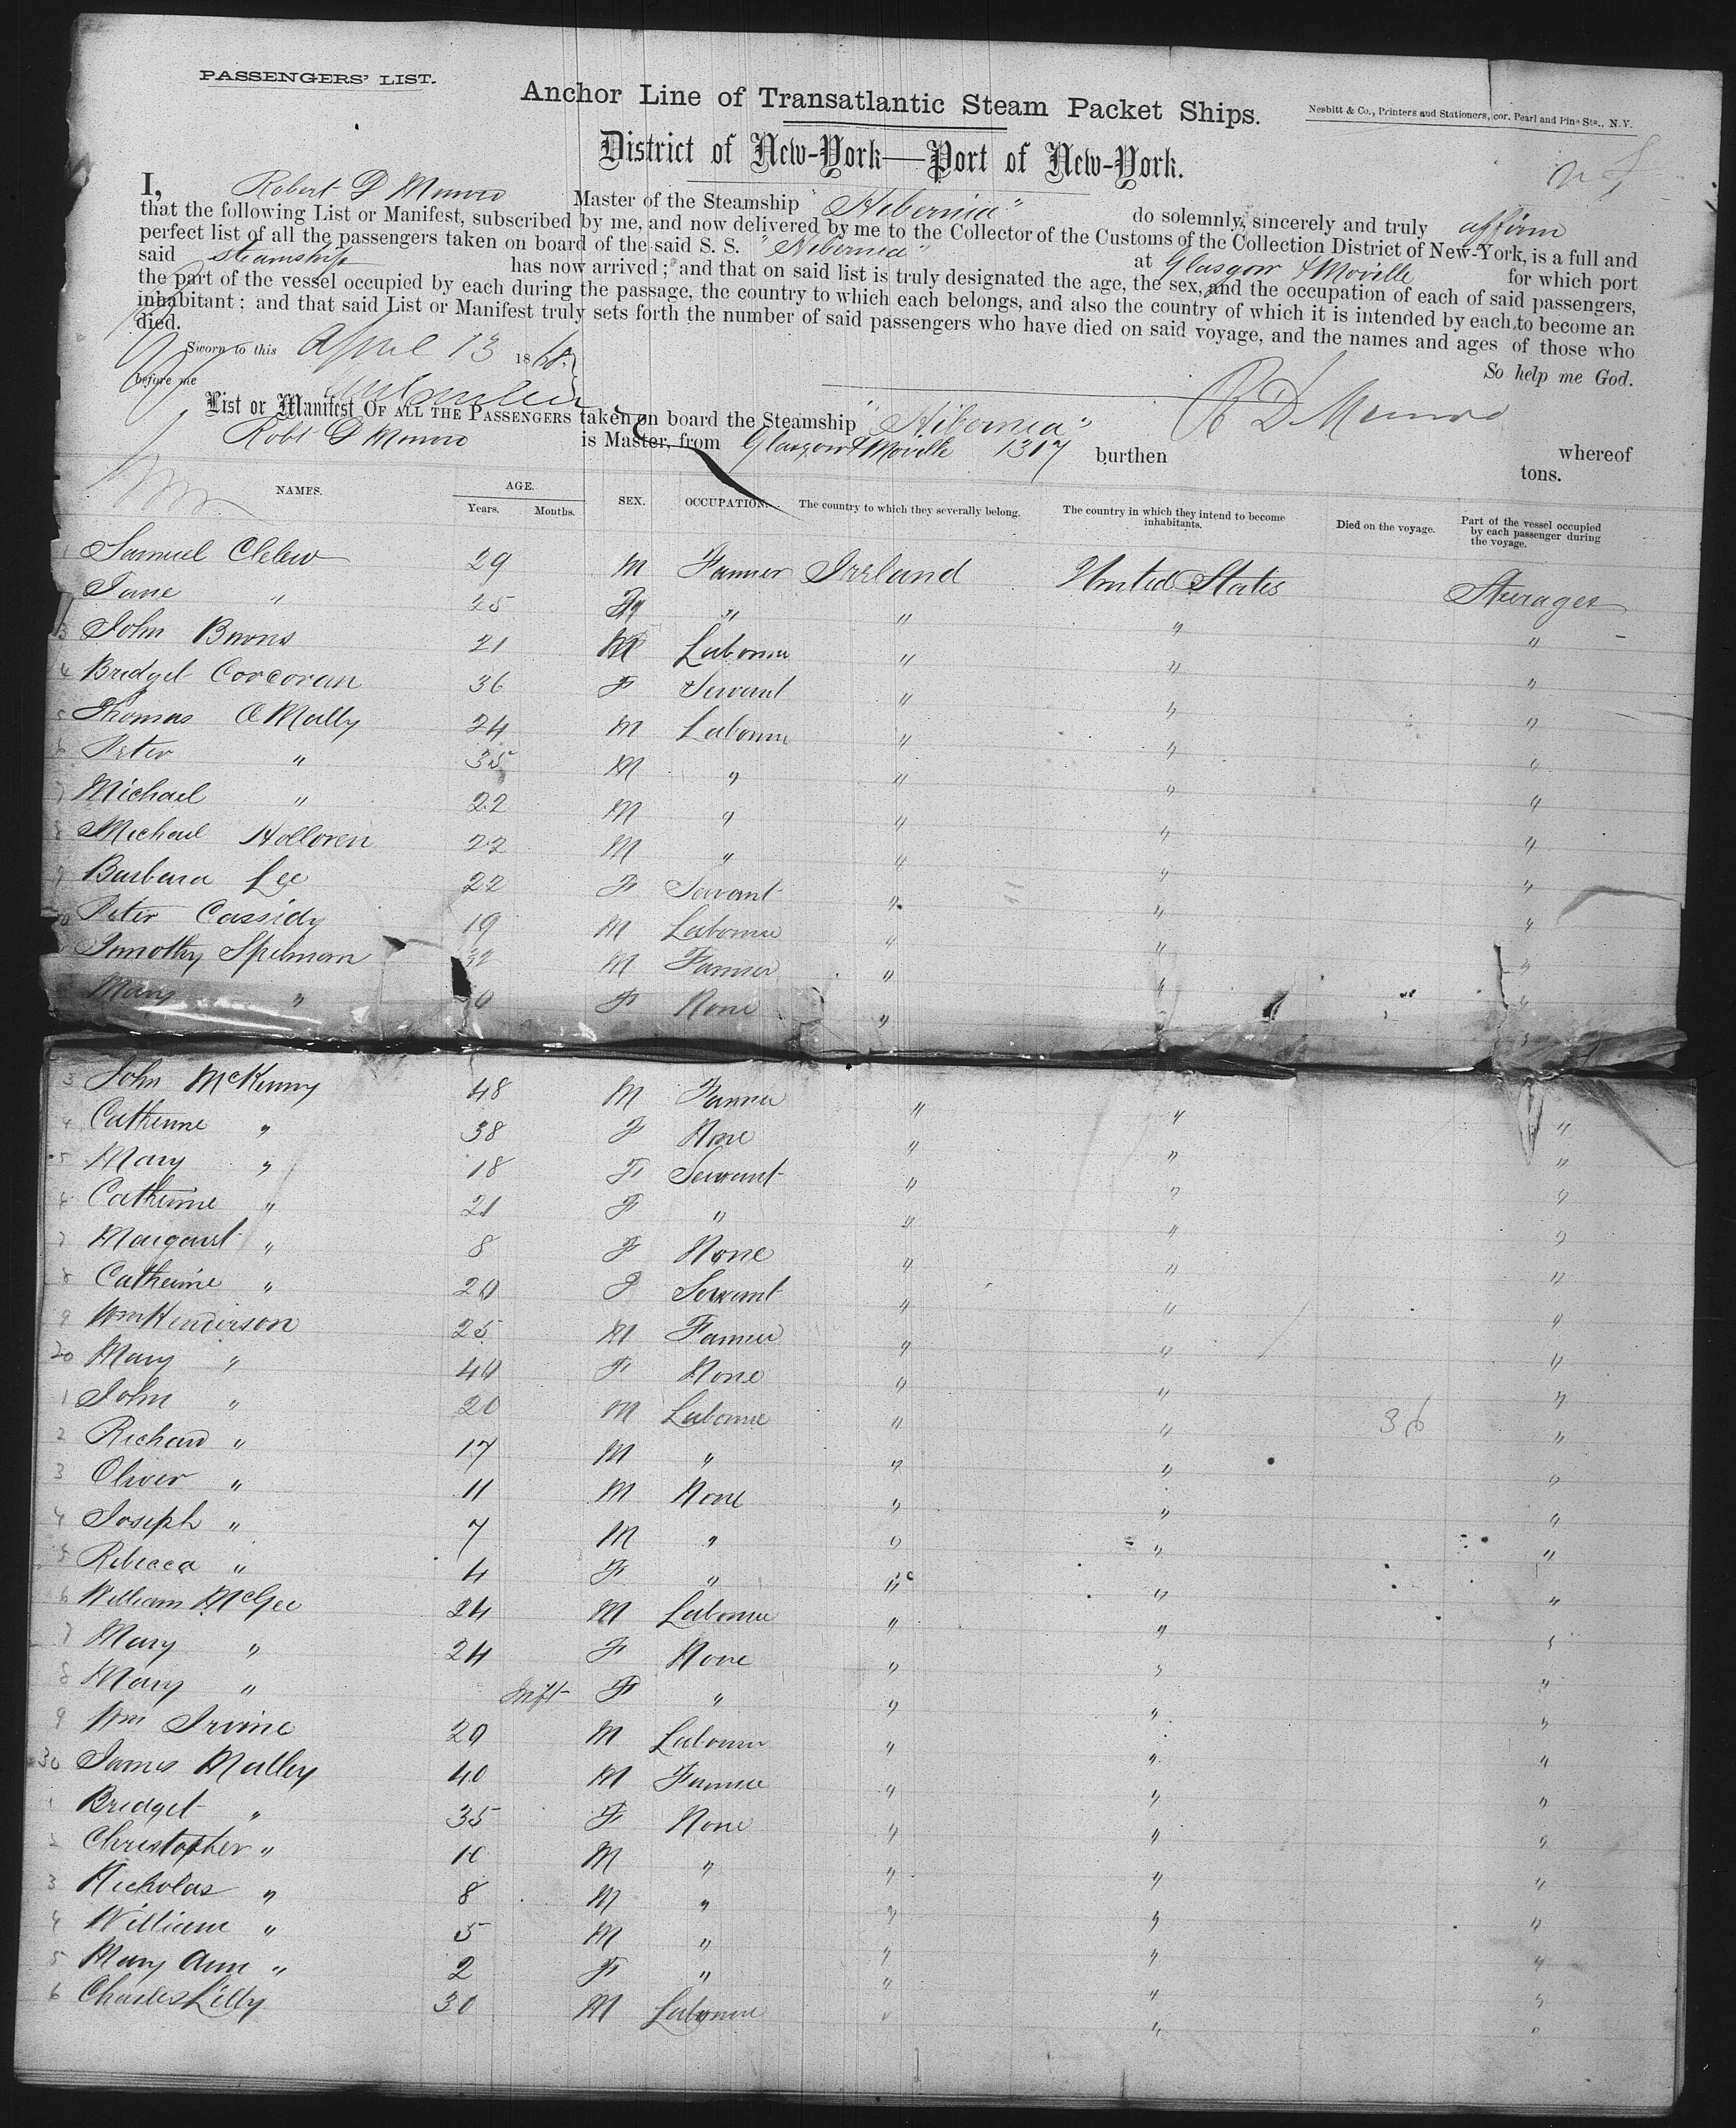 PASSENGERS' LIST.
Anchor Line of Transatlantic Steam Packet Ships.
Nesbitt & Co., Printers and Stationers, cor. Pearl and Pine Sts., N.Y.
District of New-York—Port of New-York.
I, Robert D Munro Master of the Steamship "Hibernia" do solemnly, sincerely and truly affirm
that the following List or Manifest, subscribed by me, and now delivered by me to the Collector of the Customs of the Collection District of New-York, is a full and
perfect list of all the passengers taken on board of the said S. S. "Hibernia" at Glasgow & Moville for which port
said Steamship has now arrived; and that on said list is truly designated the age, the sex, and the occupation of each of said passengers,
the part of the vessel occupied by each during the passage, the country to which each belongs, and also the country of which it is intended by each to become an
inhabitant; and that said List or Manifest truly sets forth the number of said passengers who have died on said voyage, and the names and ages of those who
died.
So help me God.
Sworn to this April 13 186
before me
R D Munro
List or Manifest OF ALL THE PASSENGERS taken on board the Steamship "Hibernia" whereof
Robt D Munro is Master, from Glasgow & Moville 1317 burthen tons.
NAMES. AGE. SEX. OCCUPATION. The country to which they severally belong. The country in which they intend to become inhabitants. Died on the voyage. Part of the vessel occupied by each passenger during the voyage.
Years. Months.
1 Samuel 29 M Farmer Ireland United States Steerages
Jane " 25 F " " " "
3 John Burns 21 M Labourer " " "
4 Bridget Corcoran 36 F Servant " " "
5 Thomas O'Mally 24 M Labourer " " "
6 Peter " 35 M " " " "
7 Michael " 22 M " " " "
8 Michael Holloren 22 M " " " "
9 Barbara Lee 22 F Servant " " "
10 Peter Cassidy 19 M Labourer " " "
Timothy Spelman 32 M Farmer " " "
Mary " F None " " "
3 John McKinny 48 M Farmer " " "
4 Catherine " 38 F None " " "
5 Mary " 18 F Servant " " "
6 Catherine " 21 F " " " "
7 Margaret " 8 F None " " "
8 Catherine " 20 F Servant " " "
9 Wm Henderson 25 M Farmer " " "
20 Mary " 40 F None " " "
1 John " 20 M Labourer " " 36 "
2 Richard " 17 M " " " "
3 Oliver " 11 M None " " "
4 Joseph " 7 M " " " "
5 Rebecca " 4 F " " " "
6 William McGee 24 M Labourer " " "
7 Mary " 24 F None " " "
8 Mary " Inft F " " " "
9 Wm Irvine 20 M Labourer " " "
30 James Malley 40 M Farmer " " "
1 Bridget " 35 F None " " "
2 Christopher " 10 M " " " "
3 Nicholas " 8 M " " " "
4 William " 5 M " " " "
5 Mary Ann " 2 F " " " "
6 Charles Lilly 30 M Labourer " " "